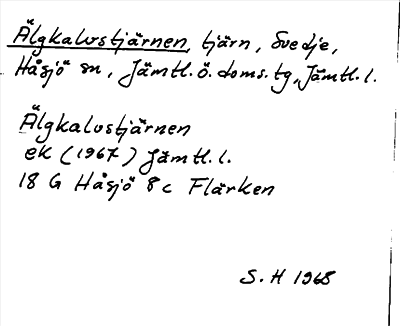 Älgkalvstjärnen, tjärn, Svedje,
Håsjö sn, Jämtl. ö. doms. tg, Jämtl. l.
Älgkalvstjärnen
ek (1967) Jämtl. l.
18 G Håsjö 8 c Flärken
S. H 1968